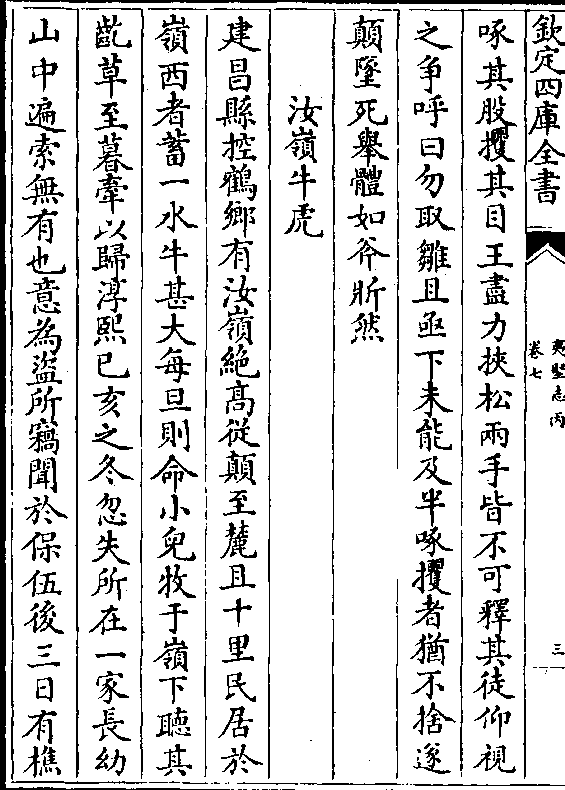 欽定四庫全書
夷堅志丙
卷七
三
啄其股攫其目王盡力挾松兩手皆不可釋其徒仰視
之爭呼曰勿取雛且亟下未能及半啄攫者猶不捨遂
顛墜死舉體如斧斨然
汝嶺牛虎
建昌縣控鶴鄉有汝嶺絶髙從顛至麓且十里民居於
嶺西者蓄一水牛甚大每旦則命小兒牧于嶺下聽其
齕草至暮牽以歸淳熙已亥之冬忽失所在一家長幼
山中遍索無有也意為盜所竊聞於保伍後三日有樵